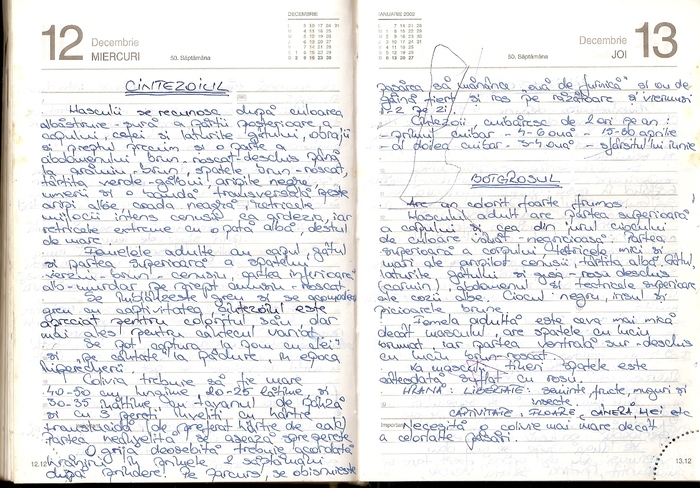 12
Decembrie
MIERCURI
50. Săptămâna
DECEMBRIE
CINTEZOIUL
Masculii se recunosc după culoarea
albăstruie-sură a părții posterioare a
capului, cefei și laturile gâtului, obrajii
și pieptul precum și o parte a
abdomenului brun-roșcat-deschis până
la arămiu-brun, spatele brun-roșcat,
târtița verde-gălbui, aripile negre,
umerii și banda transversală peste
aripi albe, coada neagră, rectricele
mijlocii intens cenușii ca ardezia, iar
retricele extreme cu o pată albă, destul
de mare.
Femelele adulte au capul, gâtul
și partea superioară a spatelui
verzui-brun-cenușiu, partea inferioară
alb-murdar pe piept cenușiu-roșcat.
Se îmblânzește greu și se acomodează
greu cu captivitatea, cintezoiul este
apreciat pentru coloritul său, dar
mai ales pentru cântecul variat.
Se pot captura la pom cu clei
și "pe cântate" la pădure, în epoca
împerecherii.
Colivia trebuie să fie mare
40-50 cm lungime, 20-25 lățime și
30-35 înălțime, cu tavanul de pânză
și cu 3 pereți înveliți cu hârtie
translucidă (de preferat hârtie de calc)
Partea neînvelită se așează spre perete.
O grijă deosebită trebuie acordată
hrănirii în primele 2 săptămâni
după prindere. Pe parcurs, se obișnuiește
12.12
IANUARIE 2002
50. Săptămâna
Decembrie
JOI
13
pasărea să mănânce "ouă de furnică" și ou de
găină fiert și ras pe răzătoare și viermuși
1-2 pe zi.
Cintezoii cuibăresc de 2 ori pe an:
- primul cuibar - 4-6 ouă - 15-30 aprilie
- al doilea cuibar - 3-4 ouă - sfârșitul lui iunie
BOTGROSUL
Are un colorit foarte frumos.
Masculul adult are partea superioară
a capului și cea din jurul ciocului
de culoare violet-negricioasă. Partea
superioară a corpului tectricele mici și
mari ale aripilor cenușii, târtița albă. Gâtul,
laturile gâtului și gușa-roșu deschis
(carmin), abdomenul și tectricele superioare
ale cozii albe. Ciocul negru, irisul și
picioarele brune.
Femela adultă este ceva mai mică
decât masculul, are spatele cu luciu
brumat, iar partea ventrală sur-deschis
cu luciu brun-roșcat.
La masculii tineri spatele este
câteodată suflat cu roșu.
HRANĂ: LIBERTATE: semințe, fructe, muguri și
insecte.
CAPTIVITATE: FLOARE, CÂNEPĂ, MEI etc
Important
Necesită o colivie mai mare decât
a celorlalte păsări.
13.12